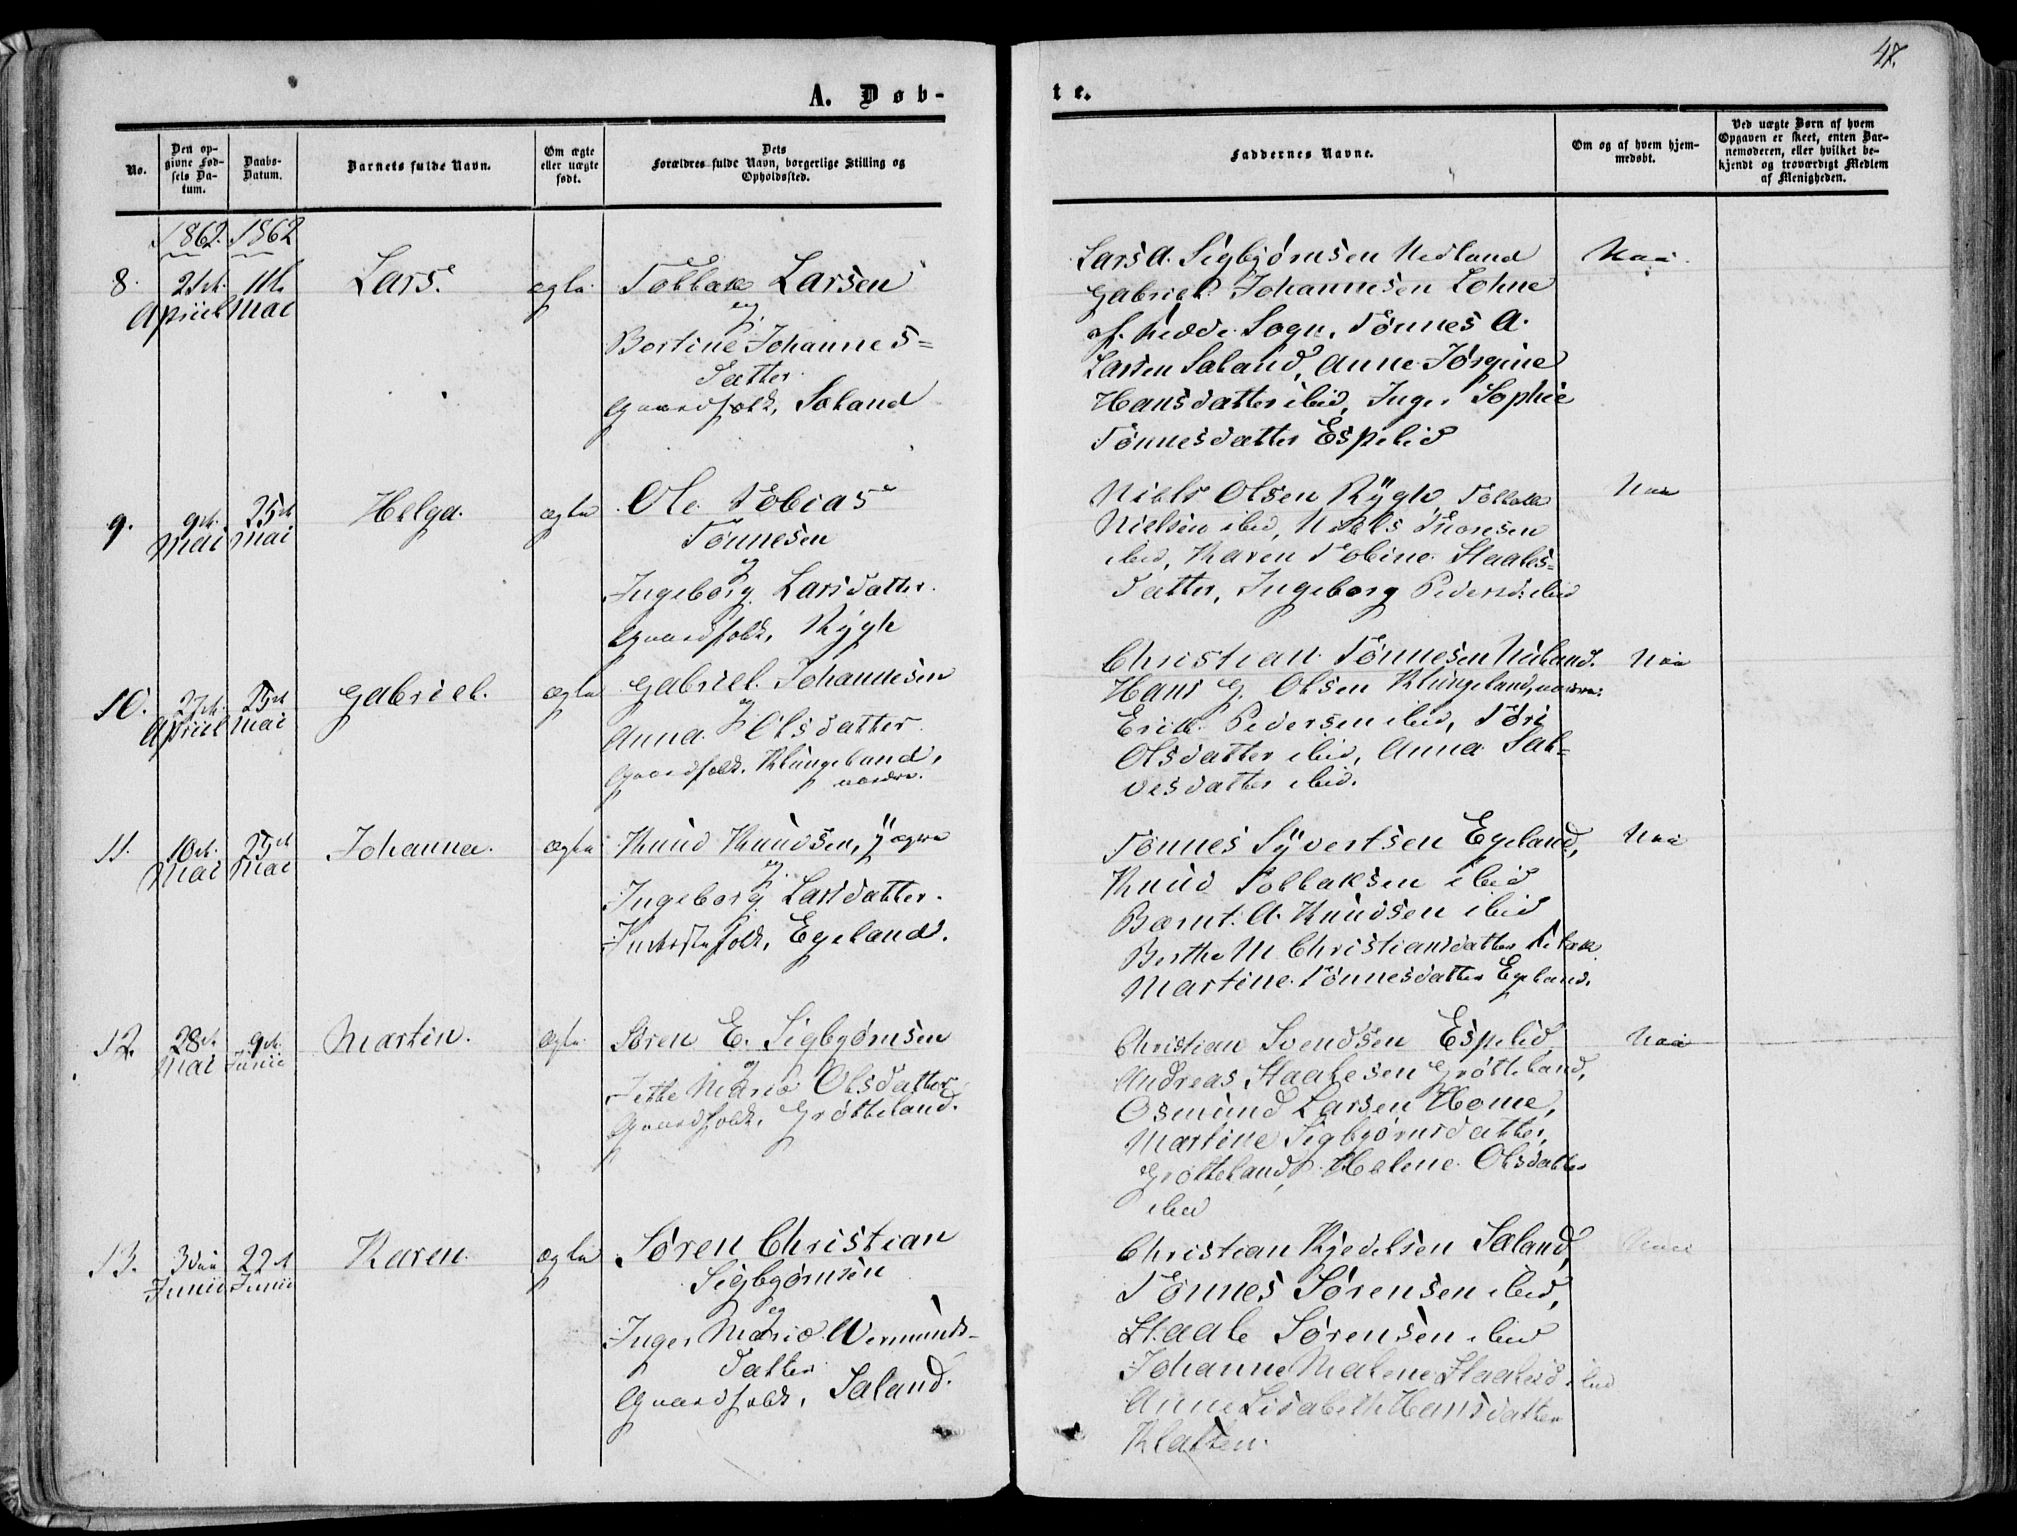 A. Døb-
te.
48.
No.
Den op-
givne Fød-
sels Da-
tum.
Daabs-
Datum.
Barnets fulde Navn.
Om ægte
eller uægte
født.
Dets
Forældres fulde Navn, borgerlige Stilling og
Opholdssted.
Faddernes Navne.
Om og af hvem hjem-
medøbt.
Ved uægte Børn af hvem
Opgaven er skeet, enten Bar-
nemoderen, eller hvilket be-
kjendt og troværdigt Medlem
af Menigheden.
1862. 1862
8.
Apriil Mai
Lars.
ægte.
Tollak Larsen
og
Bertine Johannes=
datter.
Gaardfolk, Saland
Lars A. Sigbjørnsen Nedland
Gabriel Johannesen Lohne
af Hedde Sogn, Tönnes A.
Larsen Saland, Anne Jørgine
Hansdatter ibid, Inger Sophie
Tönnesdatter Espelid
Nei.
9.
9de 25de
Mai Mai
Helga.
ægte
Ole Tobias
Tönnesen
og
Ingeborg Larsdatter.
Gaardfolk, Rygh
Niels Olsen Rygh, Tollak
Nielsen ibid, Niels Thorsen
ibid, Karen Tobine Staales=
datter, Ingeborg Pedersd. ibid
Nei
10.
27de 25de
Apriil Mai
Gabriel.
ægte
Gabriel Johannesen
og
Anna Olsdatter
Gaardfolk, Klungeland,
nordre.
Christian Tönnesen Nuland.
Hans G. Olsen Klungeland, nordre.
Erik Pedersen ibid, Töri
Olsdatter ibid, Anna Sal=
vesdatter ibid.
Nei
11.
10de 25de
Mai Mai
Johanna.
ægte
Knud Knudsen, yngre
og
Ingeborg Larsdatter.
Inderstefolk, Egeland.
Tönnes Syvertsen Egeland,
Knud Tollaksen ibid
Bernt A. Knudsen ibid
Berthe M Christiansdatter
Martine Tönnesdatter Egeland.
Nei
12.
28de 9de
Mai Junii
Martin.
ægte
Søren E. Sigbjørnsen
og
Jette Marie Olsdatter
Gaardfolk, Grötteland.
Christian Svendsen Espelid
Andreas Staalesen Grötteland,
Osmund Larsen Home,
Martine Sigbjørnsdatter,
Grötteland, Helene Olsdatter
ibid
Nei
13.
3die 22de
Junii Junii
Karen.
ægte
Søren Christian
Sigbjørnsen
og
Inger Marie Vermunds-
datter
Gaardfolk, Saland.
Christian Kjedelsen Saland,
Tönnes Sørensen ibid,
Staale Sørensen ibid
Johanne Malene Staalesd ibid
Anne Lisabeth Hansdatter
Klatten.
Nei